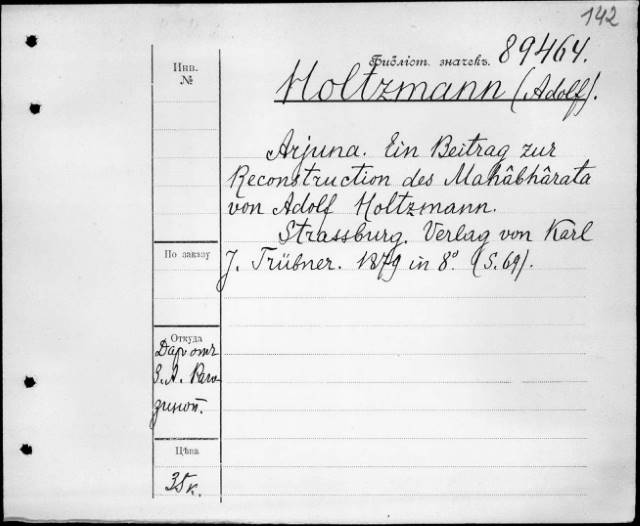 142
Библіот. значекъ. 89464.
Инв.
№
Holtzmann (Adolf).
Arjuna. Ein Beitrag zur
Reconstruction des Mahâbhârata
von Adolf Holtzmann.
Strassburg. Verlag von Karl
J. Trübner. 1879 in 8°. (S. 69).
По заказу
Откуда
Даръ отъ
Цѣна
35 к.